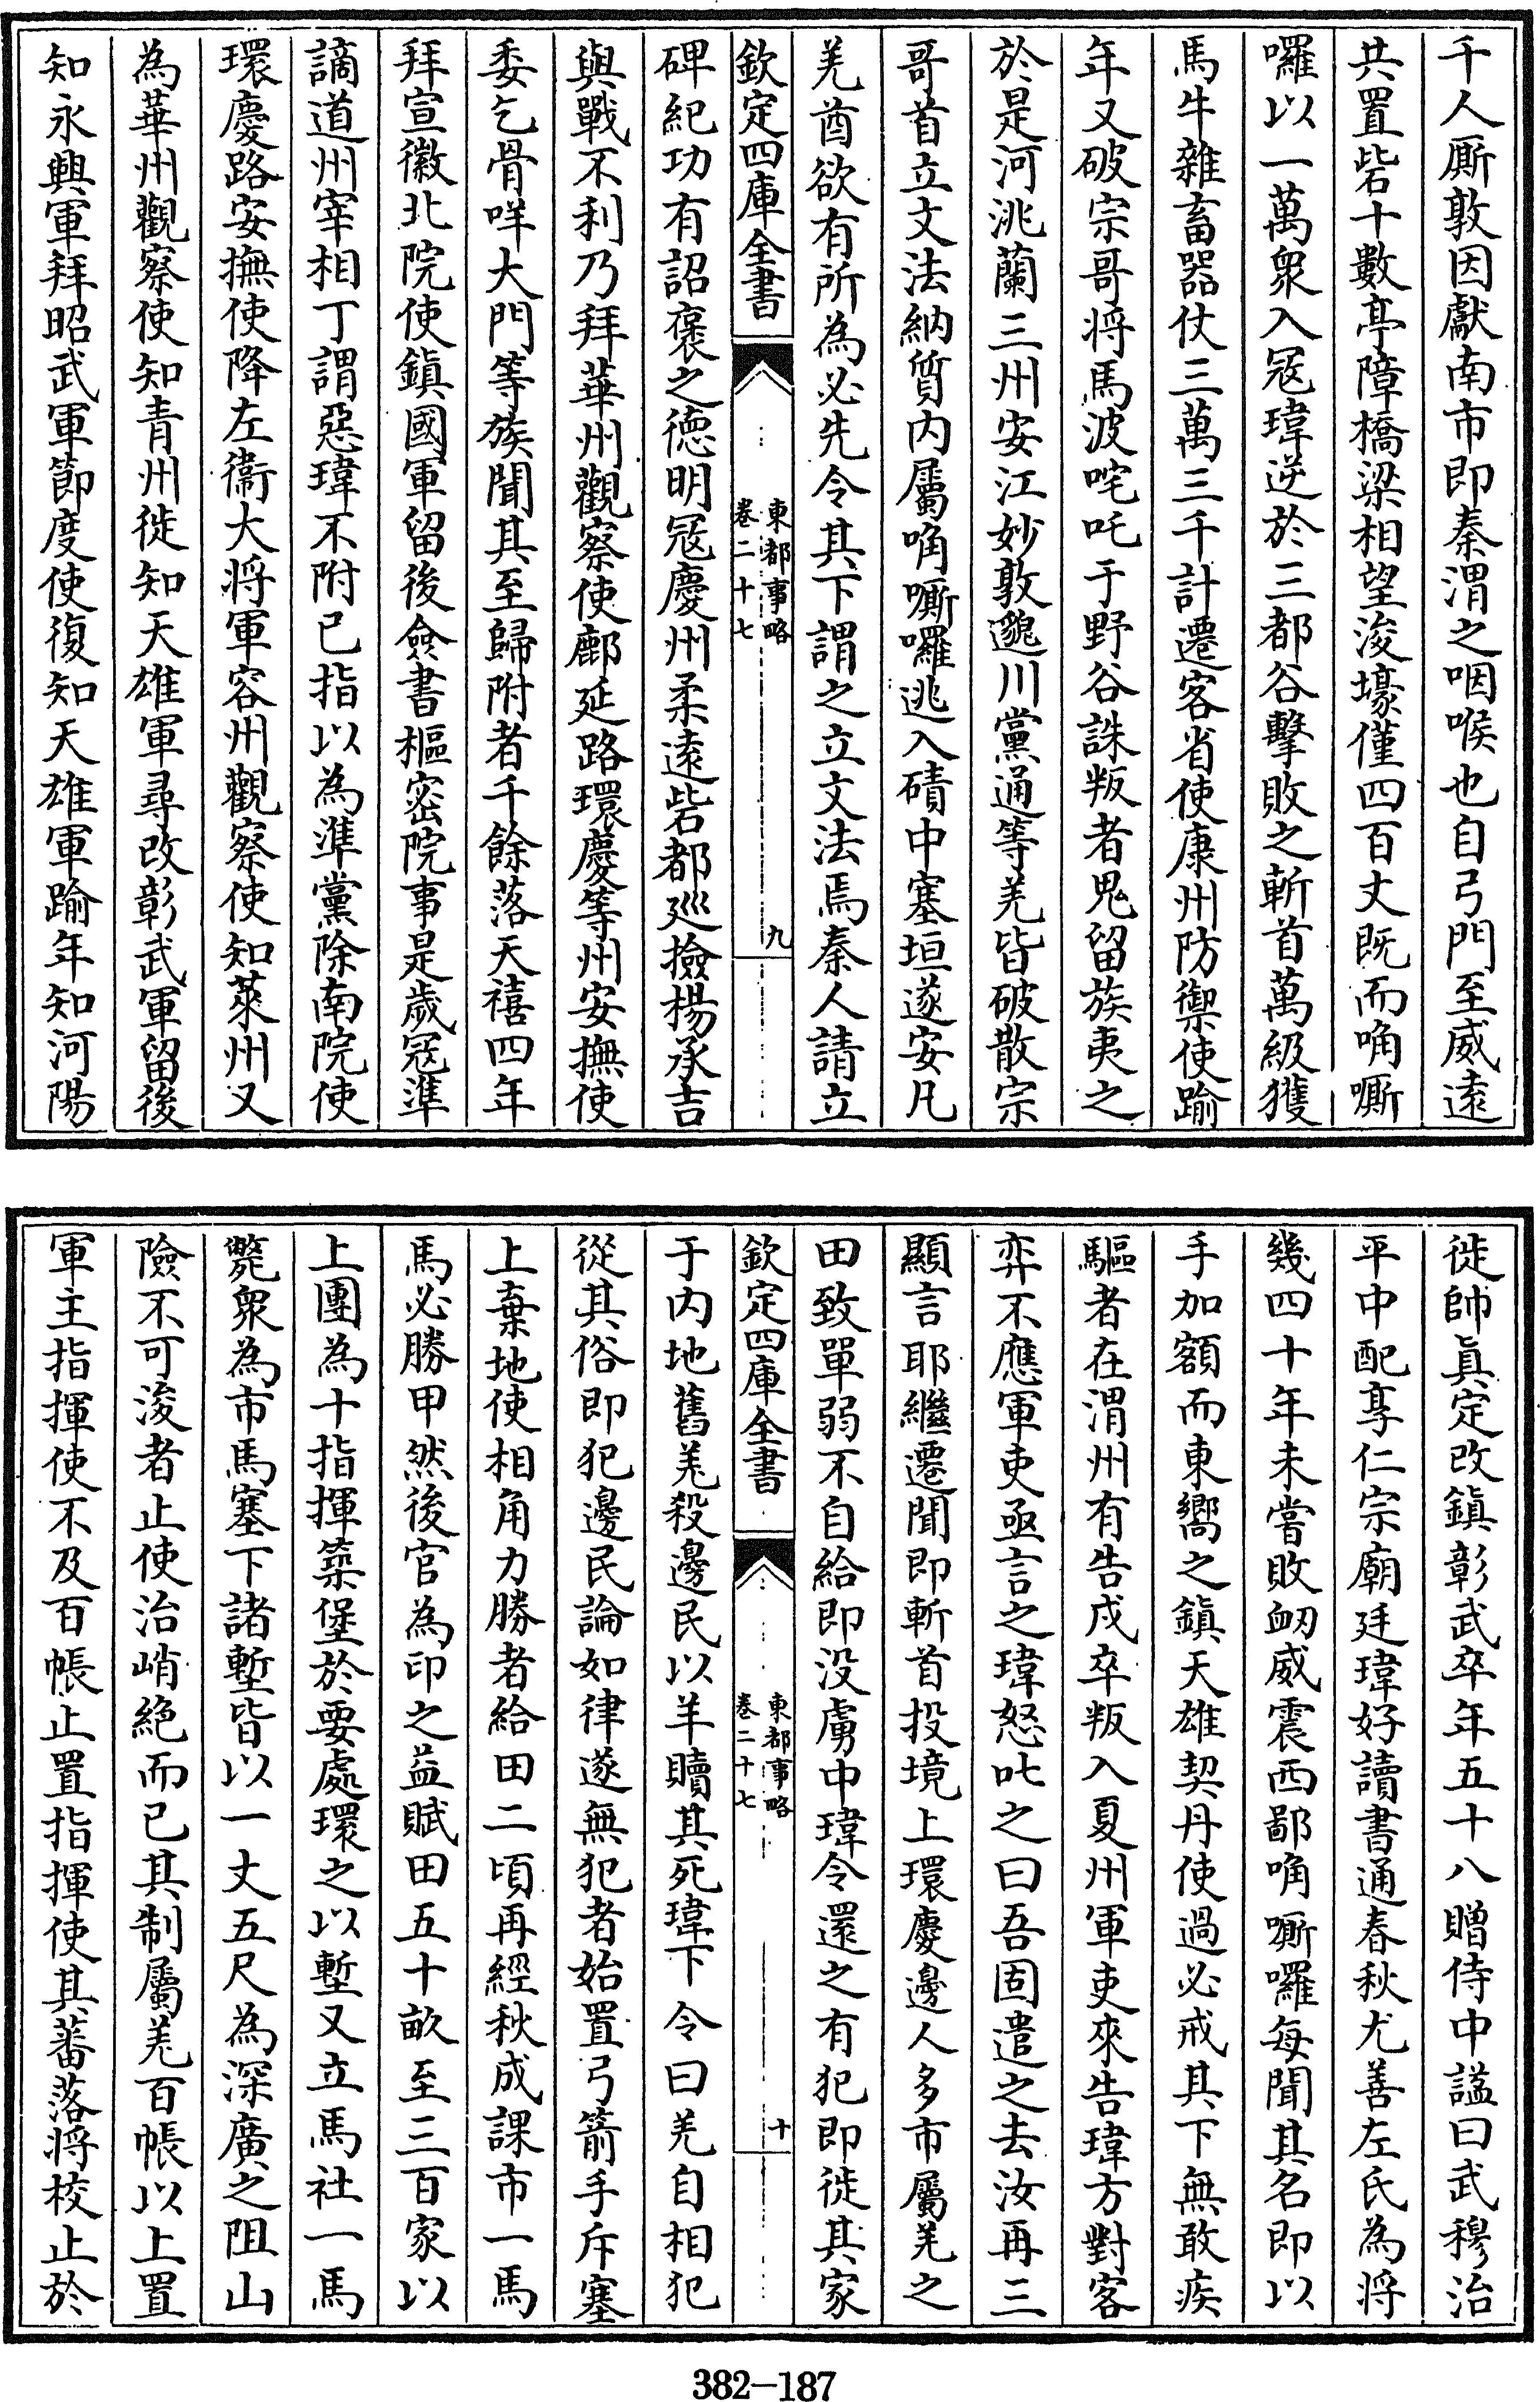 千人厮敦因獻南市即秦渭之咽喉也自弓門至威遠
共置砦十數亭障橋梁相望浚壕僅四百丈既而唃嘶
囉以一萬衆入冦瑋逆於三都谷擊敗之斬首萬級獲
馬牛雜畜器仗三萬三千計遷客省使康州防禦使踰
年又破宗哥将馬波咤吒于野谷誅叛者鬼留族夷之
於是河洮蘭三州安江妙敦邈川黨通等羌皆破散宗
哥首立文法納質内屬唃嘶囉逃入磧中塞垣遂安凡
羌酋欲有所為必先令其下謂之立文法焉秦人請立
欽定四庫全書
東都事略
卷二十七
九
碑紀功有詔褒之德明冦慶州柔遠砦都廵撿楊承吉
與戰不利乃拜華州觀察使鄜延路環慶等州安撫使
委乞骨咩大門等族聞其至歸附者千餘落天禧四年
拜宣徽北院使鎮國軍留後僉書樞密院事是歲冦準
謫道州宰相丁謂惡瑋不附已指以為準黨除南院使
環慶路安撫使降左衞大将軍容州觀察使知萊州又
為華州觀察使知青州徙知天雄軍尋改彰武軍留後
知永興軍拜昭武軍節度使復知天雄軍踰年知河陽
徙帥眞定改鎮彰武卒年五十八贈侍中諡曰武穆治
平中配享仁宗廟廷瑋好讀書通春秋尤善左氏為将
幾四十年未嘗敗衂威震西鄙唃嘶囉每聞其名即以
手加額而東嚮之鎮天雄契丹使過必戒其下無敢疾
驅者在渭州有告戍卒叛入夏州軍吏來告瑋方對客
弈不應軍吏亟言之瑋怒叱之曰吾固遣之去汝再三
顯言耶繼遷聞即斬首投境上環慶邊人多市屬羌之
田致單弱不自給即没虜中瑋令還之有犯即徙其家
欽定四庫全書
東都事略
卷二十七
十
于内地舊羌殺邊民以羊贖其死瑋下令曰羌自相犯
從其俗即犯邊民論如律遂無犯者始置弓箭手斥塞
上棄地使相角力勝者給田二頃再經秋成課市一馬
馬必勝甲然後官為印之益賦田五十畝至三百家以
上團為十指揮築堡於要處環之以塹又立馬社一馬
斃衆為市馬塞下諸塹皆以一丈五尺為深廣之阻山
險不可浚者止使治峭絶而已其制屬羌百帳以上置
軍主指揮使不及百帳止置指揮使其蕃落将校止於
382-187